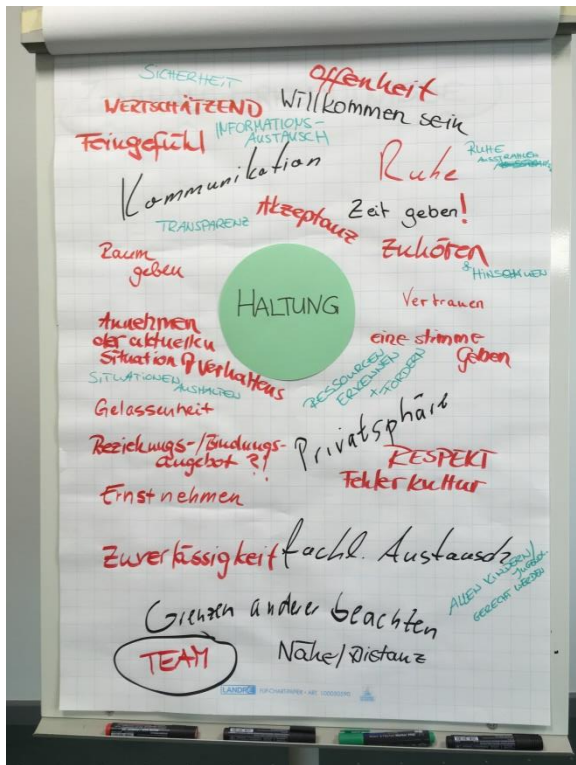 SICHERHEIT
Offenheit
WERTSCHÄTZEND
Willkommen sein
Feingefühl
INFORMATIONS-
AUSTAUSCH
Kommunikation
Ruhe
RUHE
AUSSTRAHLEN
TRANSPARENZ
Akzeptanz
Zeit geben!
Zuhören
& HINSCHAUEN
Raum
geben
HALTUNG
Vertrauen
Annehmen
der aktuellen
Situation & Verhaltens
eine Stimme
Geben
SITUATIONEN
AUSHALTEN
RESSOURCEN
ERKENNEN
+
FÖRDERN
Gelassenheit
Privatsphäre
Beziehungs-/Bindungs-
angebot ?!
RESPEKT
Fehlerkultur
Ernst nehmen
Zuverlässigkeit
fachl. Austausch
ALLEN KINDERN/
GERECHT WERDEN
Grenzen anderer beachten
TEAM
Nähe/Distanz
LANDRÉ